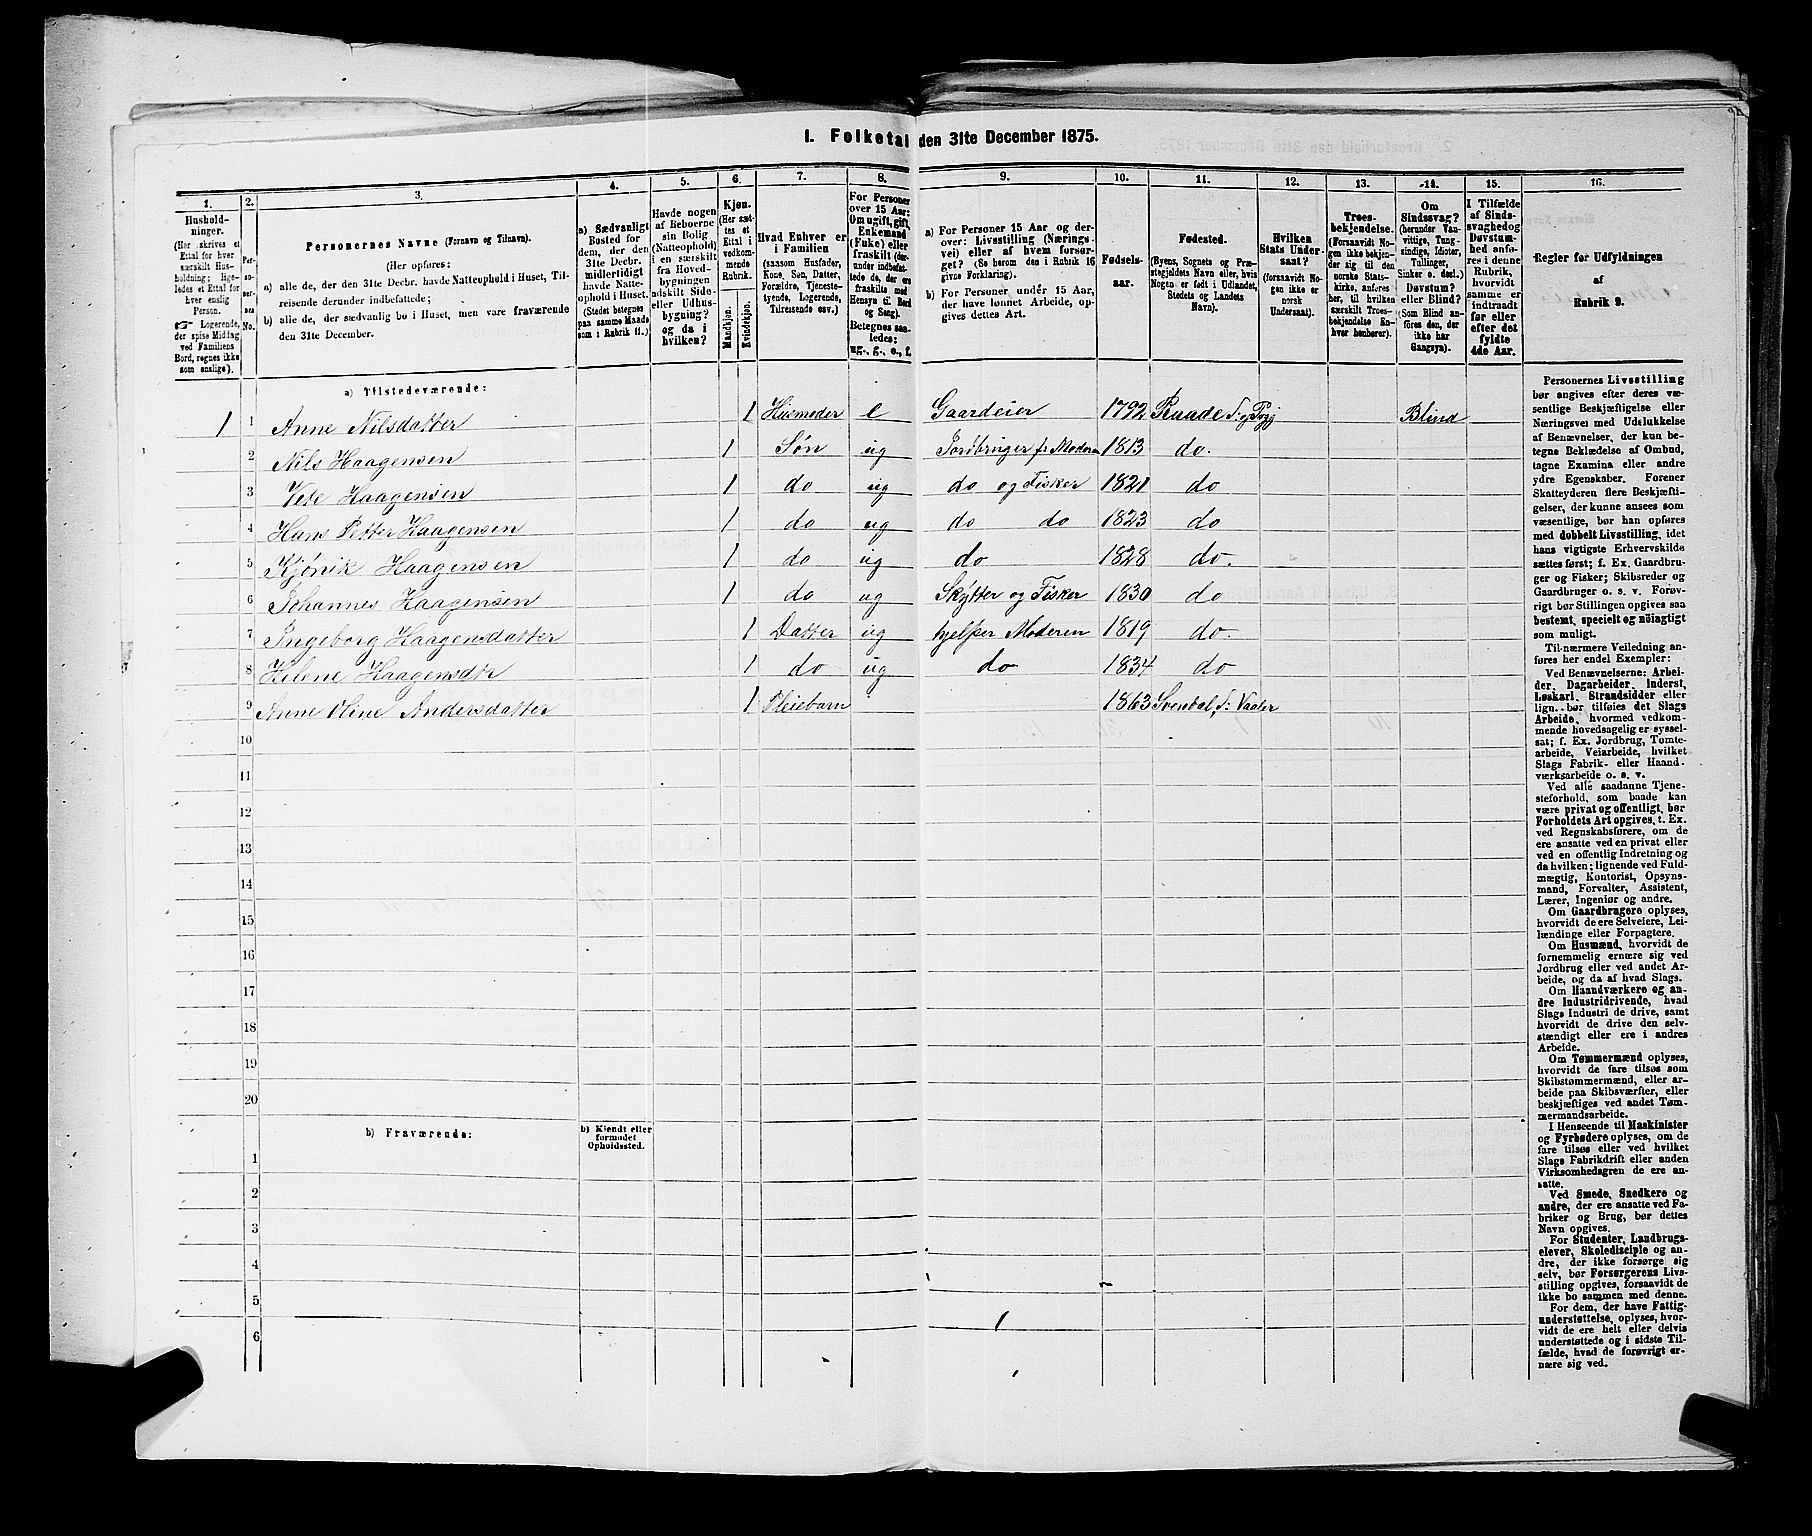 1. Folketal den 31te December 1875.
1. 2. 3. 4. 5. 6. 7. 8. 9. 10. 11. 12. 13. 14. 15. 16.
Hushold-
ninger.
(Her skrives et
Ettal for hver
særskilt Hus-
holdning; lige-
ledes et Ettal for
hver enslig
Person.
☞ Logerende,
der spise Middag
ved Familiens
Bord, regnes ikke
som enslige).
Per-
so-
ner-
nes
No.
Personernes Navne (Fornavn og Tilnavn).
(Her opføres:
a) alle de, der den 31te Decbr. havde Natteophold i Huset, Til-
reisende derunder indbefattede;
b) alle de, der sædvanlig bo i Huset, men vare fraværende
den 31te December.
a) Sædvanligt
Bosted for
dem, der den
31te Decbr.
midlertidigt
havde Natte-
ophold i Huset.
(Stedet betegnes
paa samme Maade
som i Rubrik 11.)
Havde nogen
af Beboerne
sin Bolig
(Natteophold)
i en særskilt
fra Hoved-
bygningen
adskilt Side-
eller Udhus-
bygning?
og da i
hvilken?
Kjøn.
(Her sæt-
tes et
Ettal i
vedkom-
mende
Rubrik.
Mandkjøn.
Kvindekjøn.
Hvad Enhver er
i Familien
(saasom Husfader,
Kone, Søn, Datter,
Forældre, Tjeneste-
tyende, Logerende,
Tilreisende osv.)
For Personer
over 15 Aar:
Om ugift, gift,
Enkemand
(Enke) eller
fraskilt (der-
under indbefat-
tede de, der ere
fraskilte med
Hensyn til Bord
og Seng).
Betegnes saa-
ledes:
ug., g., e., f.
a) For Personer 15 Aar og der-
over: Livsstilling (Nærings-
vei) eller af hvem forsør-
get? (Se herom den i Rubrik 16
givne Forklaring).
b) For Personer under 15 Aar,
der have lønnet Arbeide, op-
gives dettes Art.
Fødsels-
aar.
Fødested.
(Byens, Sognets og Præ-
stegjeldets Navn eller, hvis
Nogen er født i Udlandet,
Stedets og Landets
Navn).
Hvilken
Stats Under-
saat?
(forsaavidt No-
gen ikke er
norsk
Undersaat).
Troes-
bekjendelse.
(Forsaavidt No-
gen ikke bekjen-
der sig til den
norske Stats-
kirke, anføres
her, til hvilken
særskilt Troes-
bekjendelse En-
hver henhører).
Om
Sindssvag?
(herunder Van-
vittige, Tung-
sindige, Idioter,
Tullinger,
Sinker o. desl.)
Døvstum?
eller Blind?
(Som Blind an-
føres den, der
ikke har
Gangsyn).
I Tilfælde
af Sinds-
svaghed og
Døvstum-
hed anfø-
res i denne
Rubrik,
hvorvidt
samme er
indtraadt
før eller
efter det
fyldte
4de Aar.
Regler for Udfyldningen
af
Rubrik 9.
a) Tilstedeværende:
1 1 Anne Nilsdatter 1 Husmoder e Gaardeier 1792 Blind
2 Nils Haagensen 1 Søn ug Jordbruger fr Moderen 1813 do.
3 Haagensen 1 do ug do og Fisker 1821 do
4 Hans Petter Haagensen 1 do ug do do 1823 do
5 Kjønik Haagensen 1 do ug do 1828 do.
6 Johannes Haagensen 1 do ug Skytter og Fisker 1830 do
7 Ingeborg Haagensdatter 1 Datter ug hjelper Moderen 1819 do.
8 Helene Haagensdtr 1 do ug do 1834 do
9 Anne Oline Andersdatter 1 Pleiebarn 1863 Svendal, S: Vaaler
10
11
12
13
14
15
16
17
18
19
20
b) Fraværende:
b) Kjendt eller
formodet
Opholdssted.
1
2
3
4
5
6
Personernes Livsstilling
bør angives efter deres væ-
sentlige Beskjæftigelse eller
Næringsvei med Udelukkelse
af Benævnelser, der kun be-
tegne Beklædelse af Ombud,
tagne Examina eller andre
ydre Egenskaber. Forener
Skatteyderen flere Beskjæfti-
gelser, der kunne ansees som
væsentlige, bør han opføres
med dobbelt Livsstilling, idet
hans vigtigste Erhvervskilde
sættes først; f. Ex. Gaardbru-
ger og Fisker; Skibsreder og
Gaardbruger o. s. v. Forøv-
rigt bør Stillingen opgives saa
bestemt, specielt og nöiagtigt
som muligt.
Til nærmere Veiledning an-
føres her endel Exempler:
Ved Benævnelserne: Arbei-
der, Dagarbeider, Inderst,
Løskarl, Strandsidder eller
lign. bør tilføies det Slags
Arbeide, hvormed vedkom-
mende hovedsagelig er syssel-
sat; f. Ex. Jordbrug, Tomte-
arbeide, Veiarbeide, hvilket
Slags Fabrik- eller Haand-
værksarbeide o. s. v.
Ved alle saadanne Tjene-
steforhold, som baade kan
være privat og offentligt, bør
Forholdets Art opgives, t. Ex.
ved Regnskabsførere, om de
ere ansatte ved en privat eller
ved en offentlig Indretning og
da hvilken; lignende ved Fuld-
mægtig, Kontorist, Opsyns-
mand, Forvalter, Assistent,
Lærer, Ingeniør og andre.
Om Gaardbrugere oplyses,
hvorvidt de ere Selveiere, Lei-
lændinge eller Forpagtere.
Om Husmænd, hvorvidt de
fornemmelig ernære sig ved
Jordbrug eller ved andet Ar-
beide, og da af hvad Slags.
Om Haandværkere og an-
dre Industridrivende, hvad
Slags Industri de drive, samt
hvorvidt de drive den selv-
stændigt eller ere i andres
Arbeide.
Om Tømmermænd oplyses,
hvorvidt de fare tilsøs som
Skibstømmermænd, eller ar-
beide paa Skibsværfter, eller
beskjæftiges ved andet Tøm-
mermandsarbeide.
I Henseende til Maskinister
og Fyrbødere oplyses, om de
fare tilsøs eller ved hvilket
Slags Fabrikdrift eller anden
Virksomhedsgren de ere an-
satte.
Ved Smede, Snedkere og
andre, der ere ansatte ved Fa-
briker og Brug, bør dettes
Navn opgives.
For Studenter, Landbrugs-
elever, Skoledisciple og an-
dre, der ikke forsørge sig
selv, bør Forsørgerens Livs-
stilling opgives, forsaavidt de
ikke bo sammen med denne.
For dem, der have Fattig-
understøttelse, oplyses, hvor-
vidt de ere helt eller delvis
understøttede og i sidste Til-
fælde, hvad de forøvrigt er-
nære sig ved.